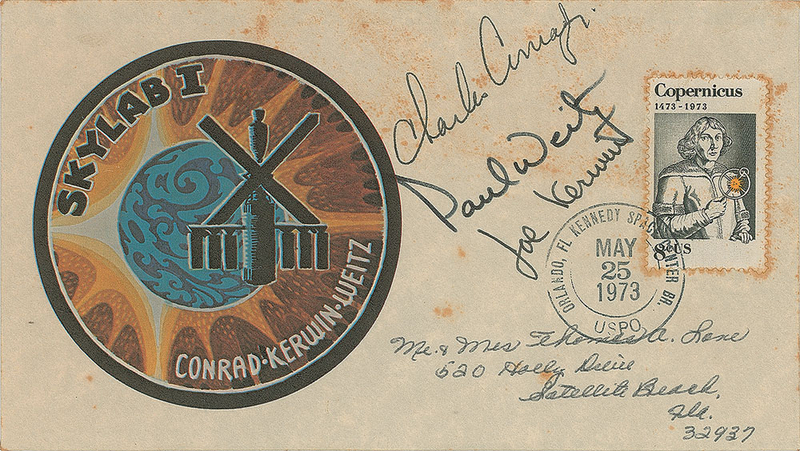 SKYLAB I
CONRAD·KERWIN·WEITZ
Charles Conrad Jr.
Paul Weitz
Joe Kerwin
Copernicus
1473-1973
8¢ US
ORLANDO, FL KENNEDY SPACE CENTER BR.
MAY
25
1973
USPO
Mr. & Mrs Thomas A. Lane
520 Holly Drive
Satellite Beach,
Fla.
32937